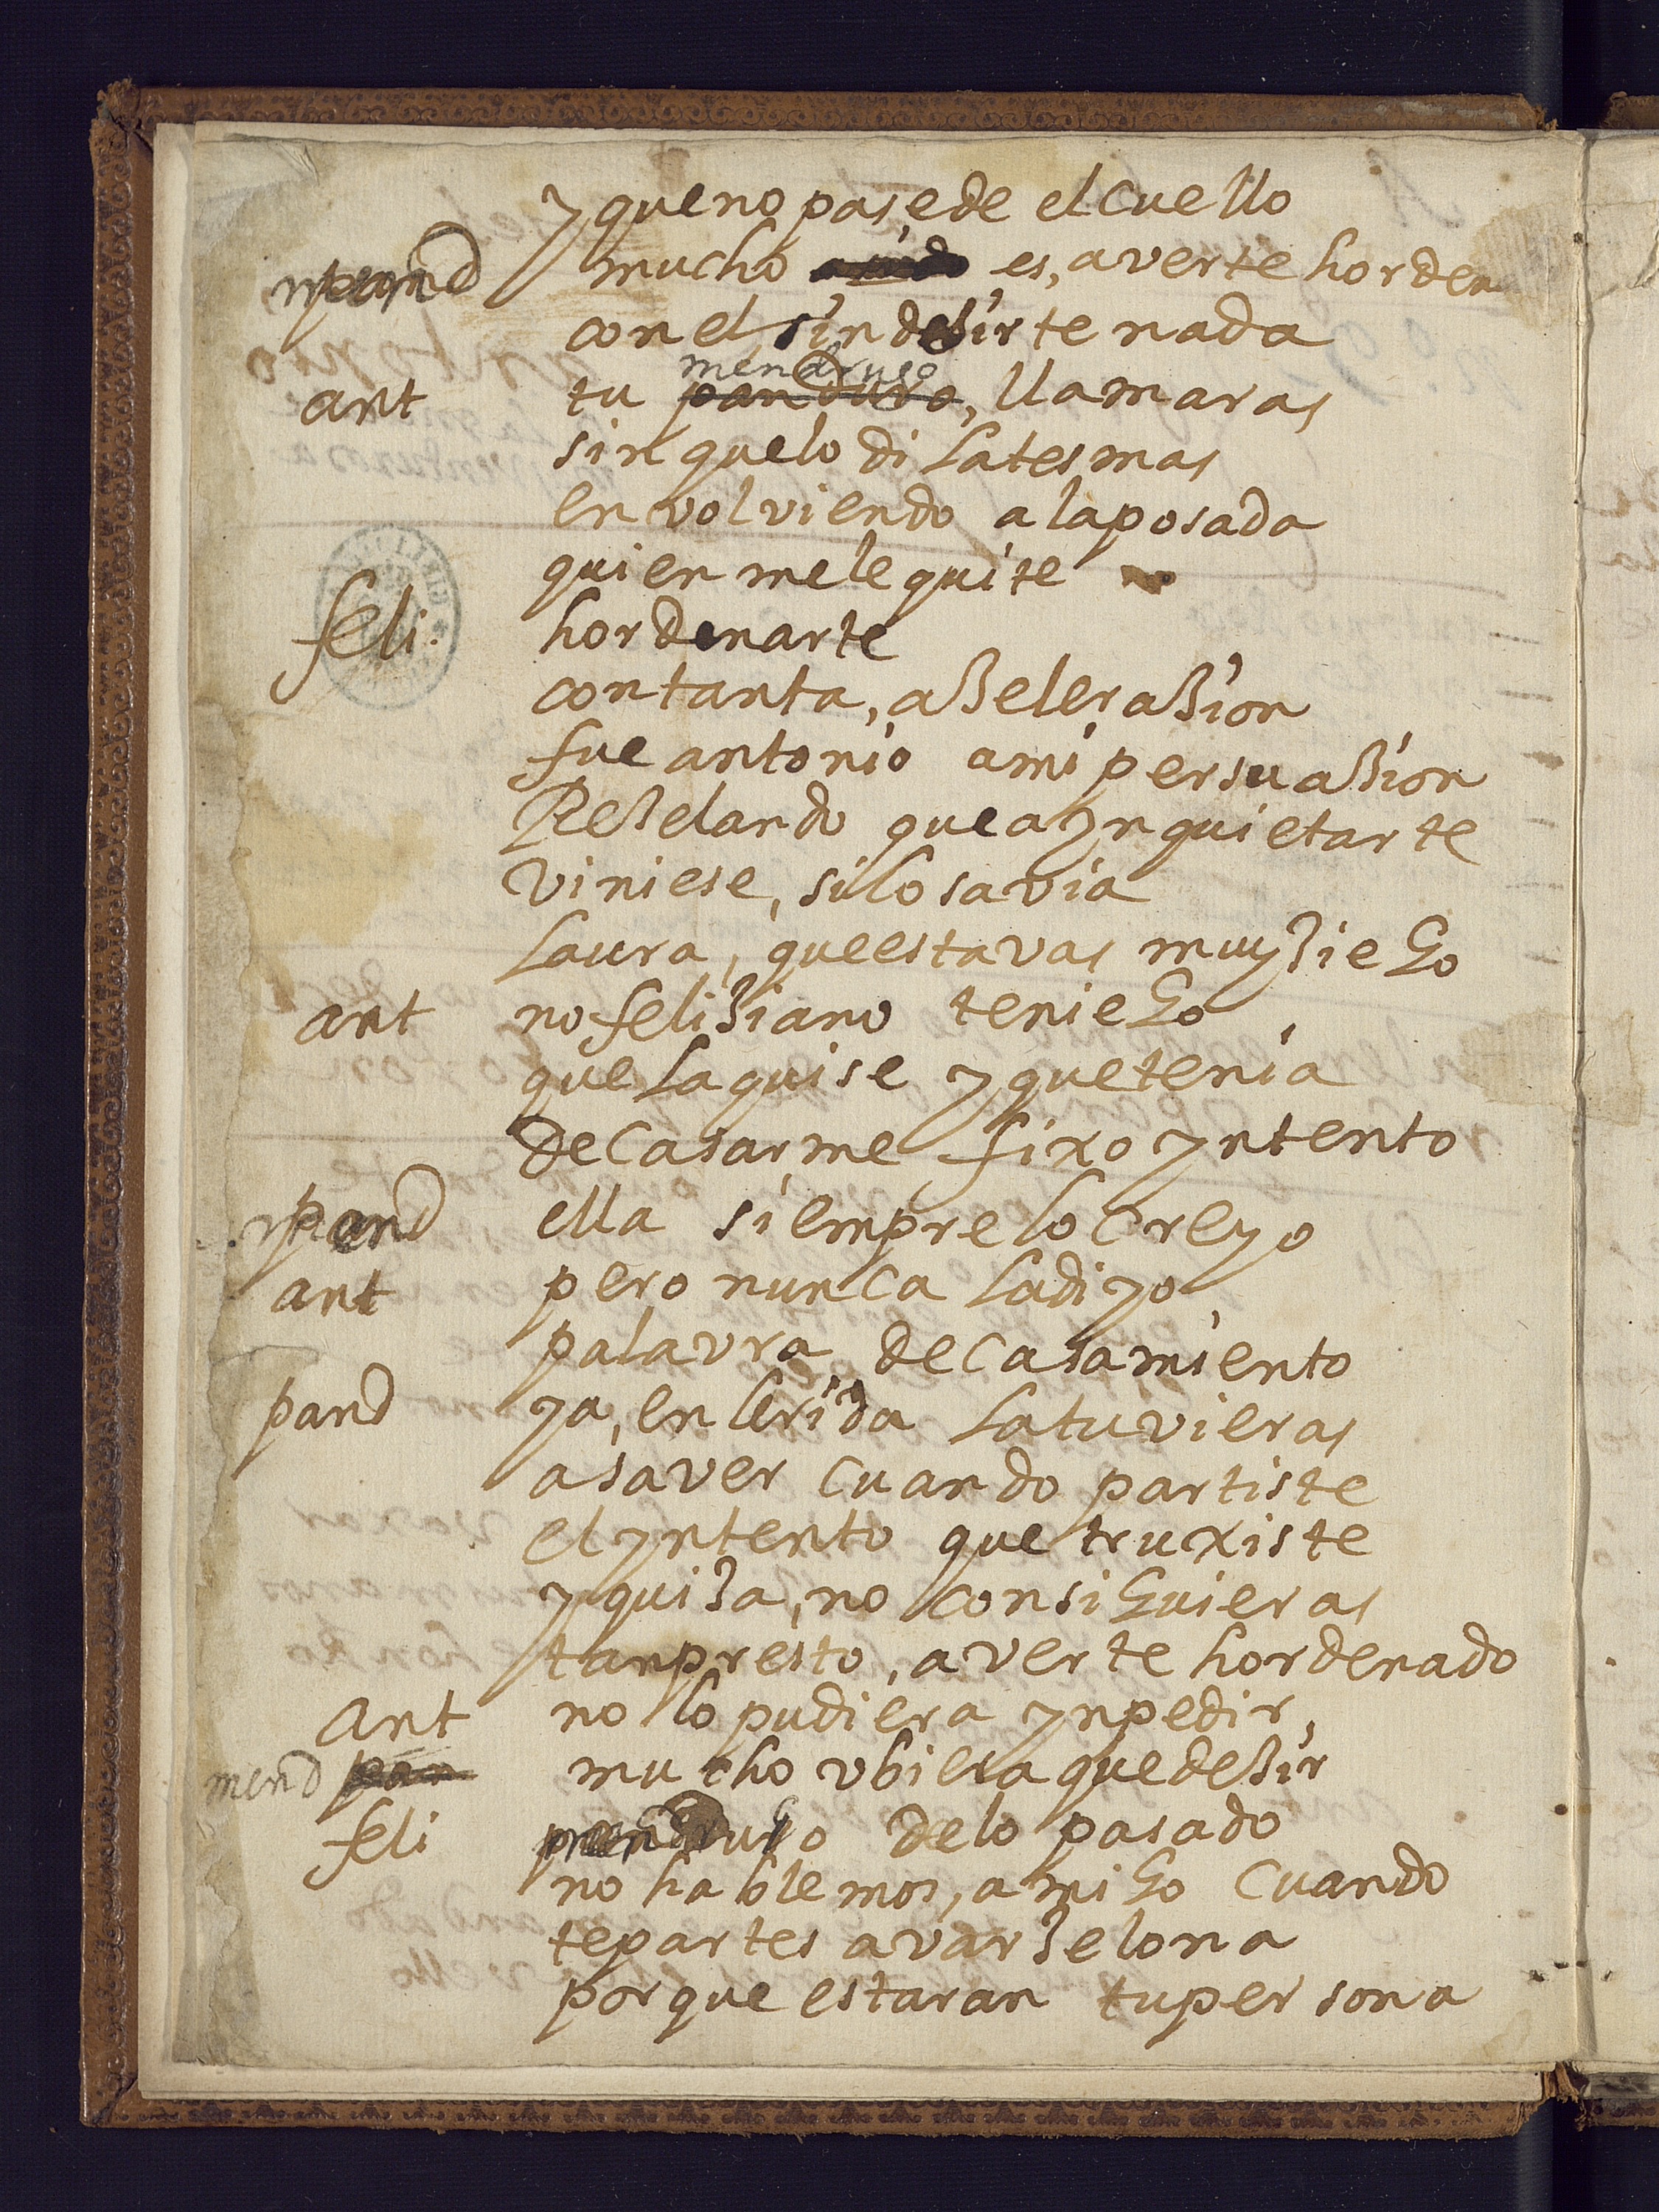 y que no pase de el cuello
mend mucho es, averte horden
con el sin desirte nada
mendrugo
ant tu panduro, llamaras
sin que lo dilates mas
en volviendo a la posada
quien me le quite
feli. hordenarte
con tanta, aselerasion
fue antonio a mi persuasion
Reselando que a ynquietarte
viniese, si lo savia
laura, que estavas muy siego
ant no felisiano te niego
que la quise y que tenia
de casarme fixo yntento
mend ella siempre lo creyo
ant pero nunca la di yo
palavra de casamiento
pand ya, en lerida la tuvieras
a saver cuando partiste
el yntento que truxiste
y quisa, no consiguieras
tan presto, averte hordenado
ant no lo pudiera ynpedir,
mend pan mucho ubiera que desir
feli mendrugo de lo pasado
no hablemos, amigo cuando
te partes a varselona
porque estaran tu persona